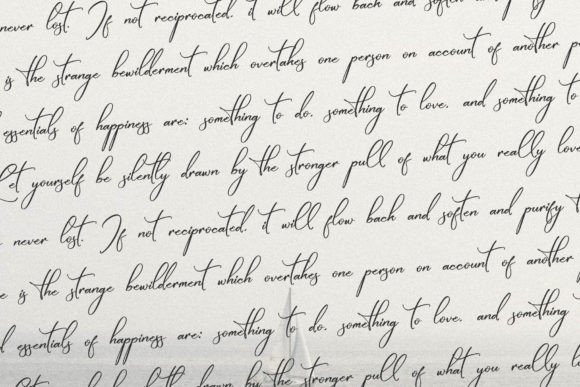 never lost. If not reciprocated, it will flow back and soften and purify
is the strange bewilderment which overtakes one person on account of another
essentials of happiness are: something to do, something to love, and something to
Let yourself be silently drawn by the stronger pull of what you really love
never lost. If not reciprocated, it will flow back and soften and purify
e is the strange bewilderment which overtakes one person on account of another
d essentials of happiness are: something to do, something to love, and something
be silently drawn by the stronger pull of what you really